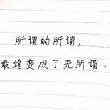 所谓的所谓,
最终变成了无所谓。